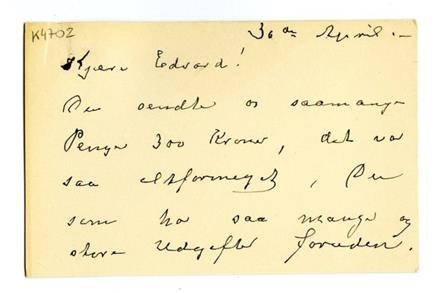 K4702
30de April.–
Kjære Edvard!
Du sendte os saamange
Penge 300 Kroner, det var
saa altformeget, Du
som har saa mange og
store Udgifter foruden.